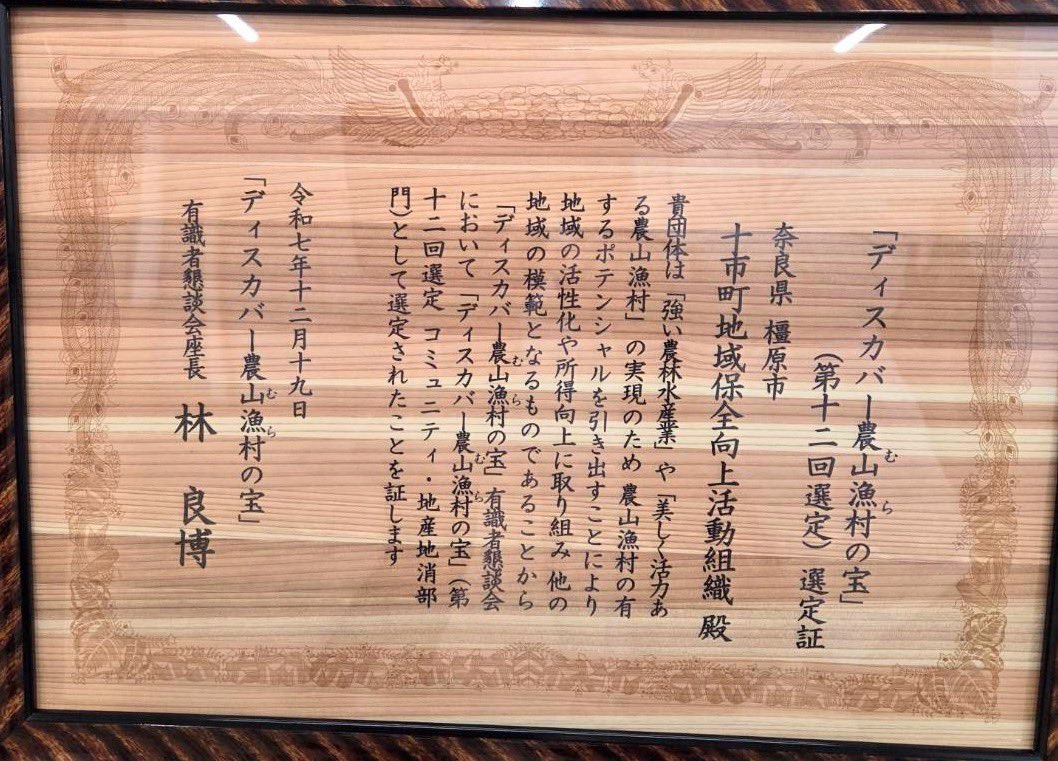 「ディスカバー農山漁村の宝」
むら
（第十二回選定） 選定証
奈良県 橿原市
十市町地域保全向上活動組織 殿
貴団体は「強い農林水産業」や「美しく活力あ
る農山漁村」の実現のため 農山漁村の有
するポテンシャルを引き出すことにより
地域の活性化や所得向上に取り組み 他の
地域の模範となるものであることから
「ディスカバー農山漁村の宝」有識者懇談会
むら
において「ディスカバー農山漁村の宝」（第
むら
十二回選定 コミュニティ・地産地消部
門）として選定されたことを証します
令和七年十二月十九日
「ディスカバー農山漁村の宝」
むら
有識者懇談会座長 林 良博